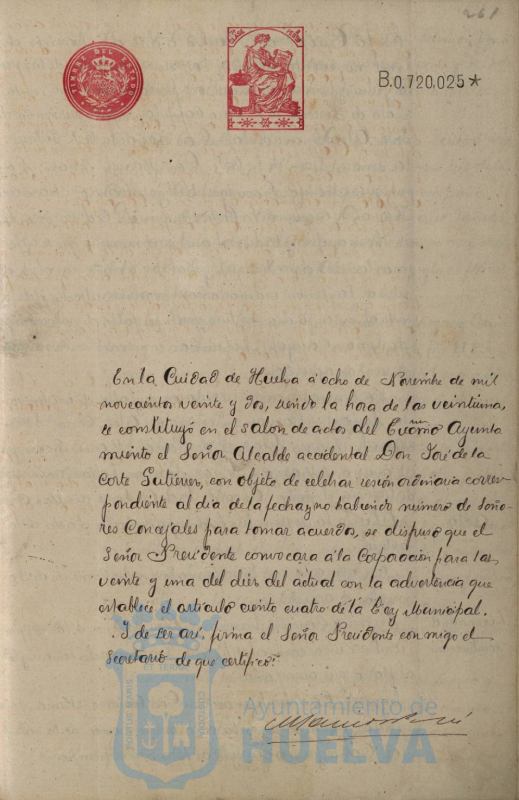 261
TIMBRE DEL ESTADO
CLASE
B.0.720.025*
En la Cuidad de Huelva á ocho de Noviembre de mil
novecientos veinte y dos, siendo la hora de las veintiuna,
se constituyó en el salon de actos del Excmo Ayunta
miento el Señor Alcalde accidental Don José de la
Corte Gutiérrez, con objeto de celebrar sesión ordinaria corres-
pondiente al dia de la fecha y no habiendo numero de Seño-
res Concejales para tomar acuerdos, se dispuso que el
Señor Presidente convocara á la Corporación para las
veinte y una del diez del actual con la advertencia que
establece el artículo ciento cuatro de la Ley Municipal.
Y de ser así, firma el Señor Presidente conmigo el
Secretario de que certifico.
PORTUS MARIS
ET TERRAE
CUSTODIA
Ayuntamiento de
HUELVA